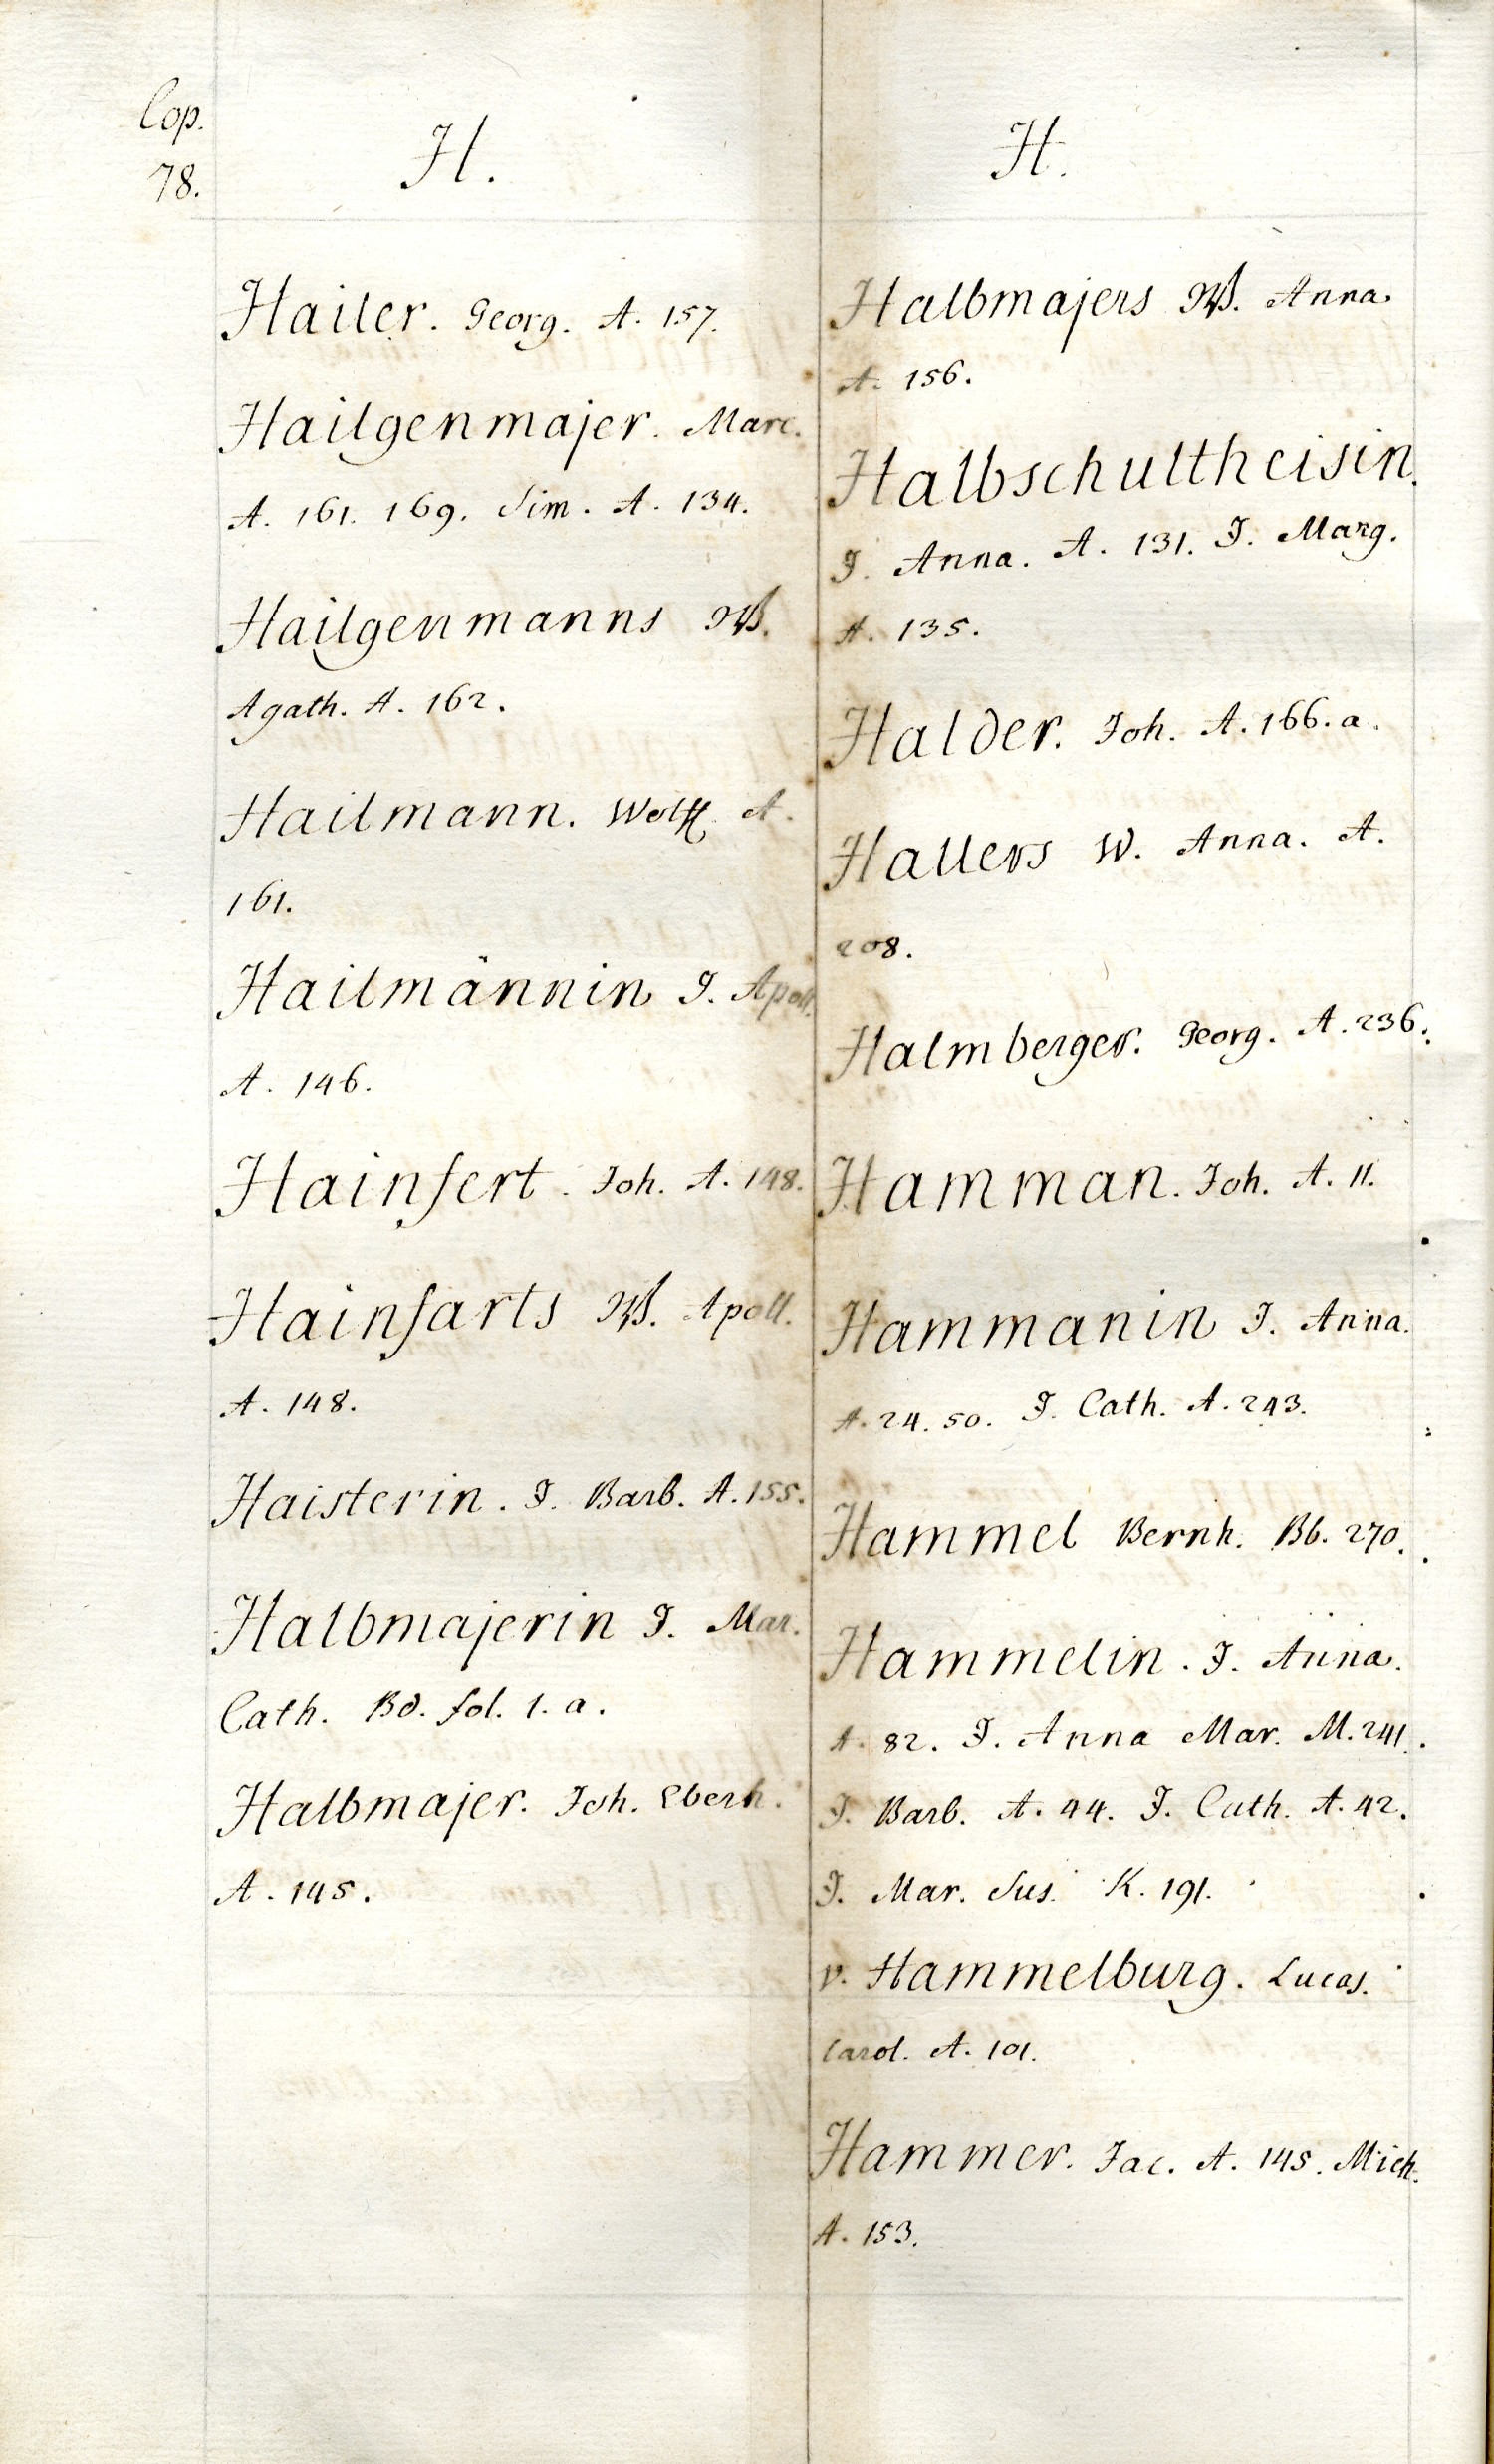 Cop.
78.
H.
Hailer. Georg. A. 157.
Hailgenmajer. Marc.
A. 161. 169. Sim. A. 134.
Hailgenmanns W.
Agath. A. 162.
Hailmann. Wolff. A.
161.
Hailmännin J. Apoll.
A. 146.
Hainfert. Joh. A. 148.
Hainfarts W. Apoll.
A. 148.
Haisterin. J. Barb. A. 155.
Halbmajerin J. Mar.
Cath. Bd. fol. 1. a.
Halbmajer. Joh. Eberh.
A. 145.
H.
Halbmajers W. Anna
A. 156.
Halbschultheisin.
J. Anna. A. 131. J. Marg.
A. 135.
Halder. Joh. A. 166. a.
Hallers W. Anna. A.
208.
Halmberger. Georg. A. 236.
Hamman. Joh. A. 11.
Hammanin J. Anna.
A. 24. 50. J. Cath. A. 243.
Hammel Bernh. Bb. 270.
Hammelin. J. Anna.
A. 82. J. Anna Mar. M. 241.
J. Barb. A. 44. J. Cath. A. 42.
J. Mar. Sus. K. 191.
v. Hammelburg. Lucas.
Carol. A. 101.
Hammer. Jac. A. 145. Mich.
A. 153.